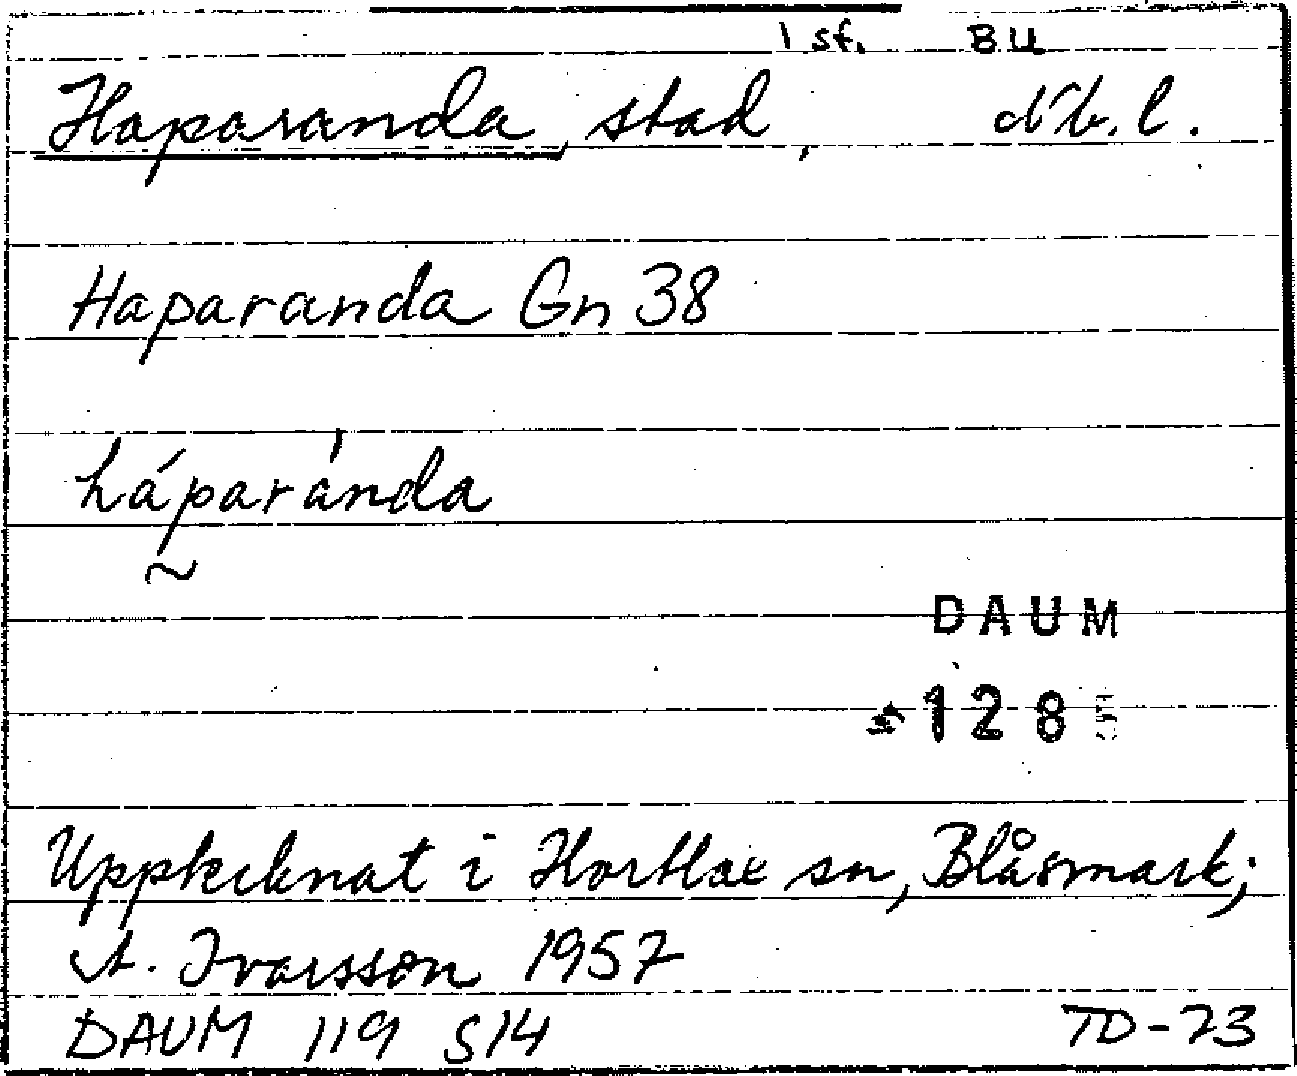 1 sf. BU
Haparanda, stad, Nb. l.
Haparanda Gn 38
háparánda
~
DAUM
1285
Upptecknat i Hortlax sn, Blåsmark;
A. Ivarsson 1957
DAUM 119 S14 TD-73